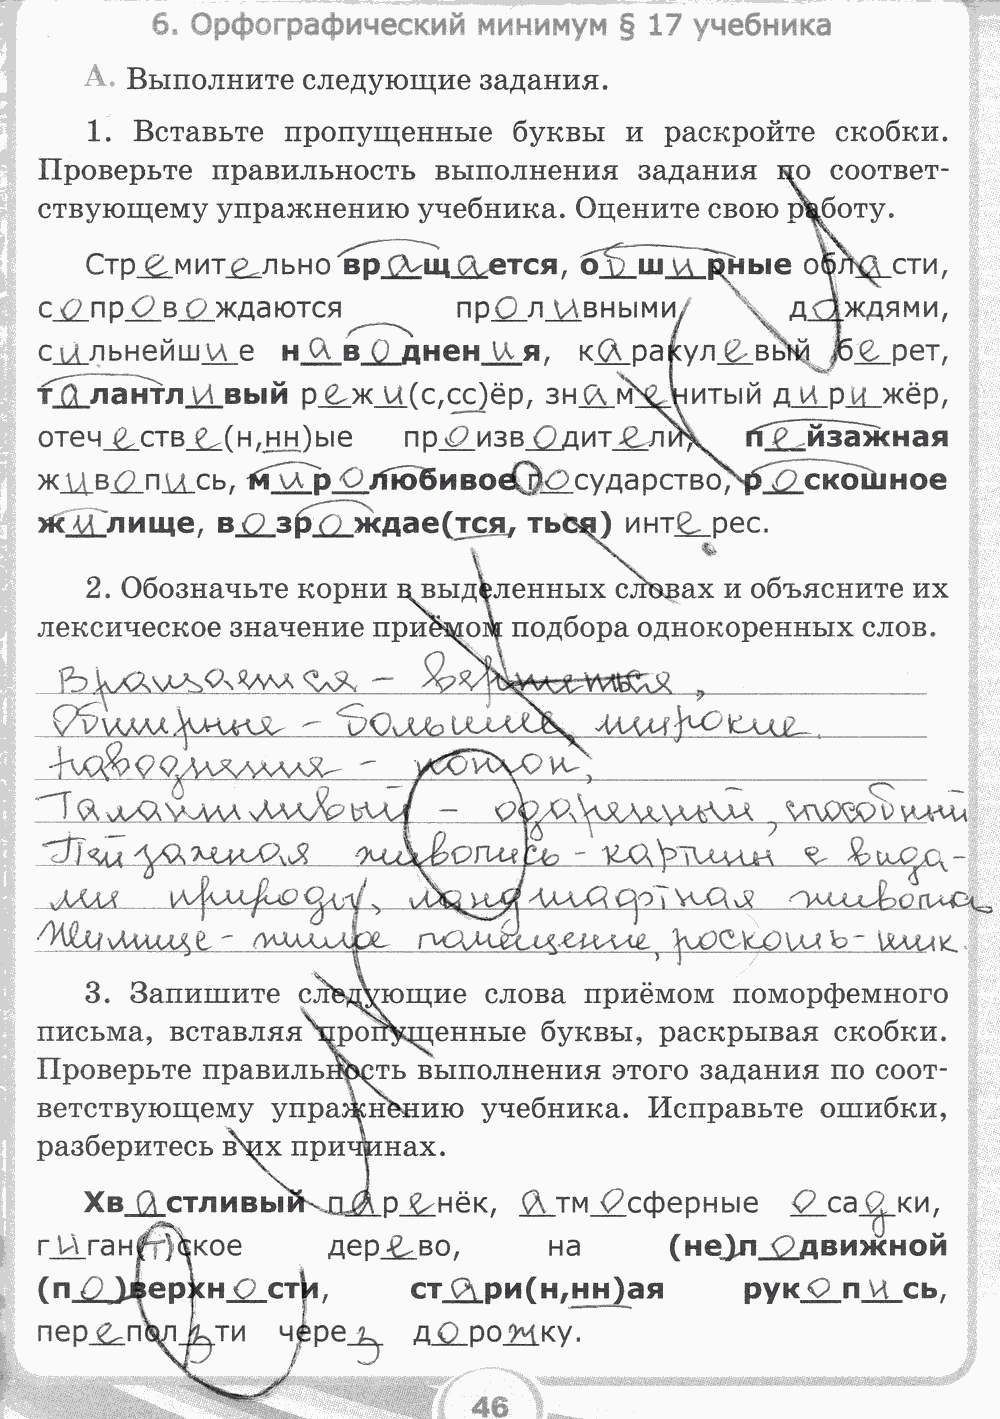 6. Орфографический минимум § 17 учебника
А. Выполните следующие задания.
1. Вставьте пропущенные буквы и раскройте скобки.
Проверьте правильность выполнения задания по соответ-
ствующему упражнению учебника. Оцените свою работу.
Стремительно вращается, обширные области,
сопровождаются проливными дождями,
сильнейшие наводнения, каракулевый берет,
талантливый режи(с,сс)ёр, знаменитый дирижёр,
отечестве(н,нн)ые производители, пейзажная
живопись, миролюбивое государство, роскошное
жилище, возрождае(тся, ться) интерес.
2. Обозначьте корни в выделенных словах и объясните их
лексическое значение приёмом подбора однокоренных слов.
Вращается - вертеться,
Обширные - большие, широкие
наводнения - потоп,
Талантливый - одаренный, способный
Пейзажная живопись - картины с вида-
ми природы, ландшафтная живопись
Жилище - жилое помещение, роскошь - шик.
3. Запишите следующие слова приёмом поморфемного
письма, вставляя пропущенные буквы, раскрывая скобки.
Проверьте правильность выполнения этого задания по соот-
ветствующему упражнению учебника. Исправьте ошибки,
разберитесь в их причинах.
Хвастливый паренёк, атмосферные осадки,
гиган(т)ское дерево, на (не)подвижной
(по)верхности, стари(н,нн)ая рукопись,
переползти через дорожку.
46